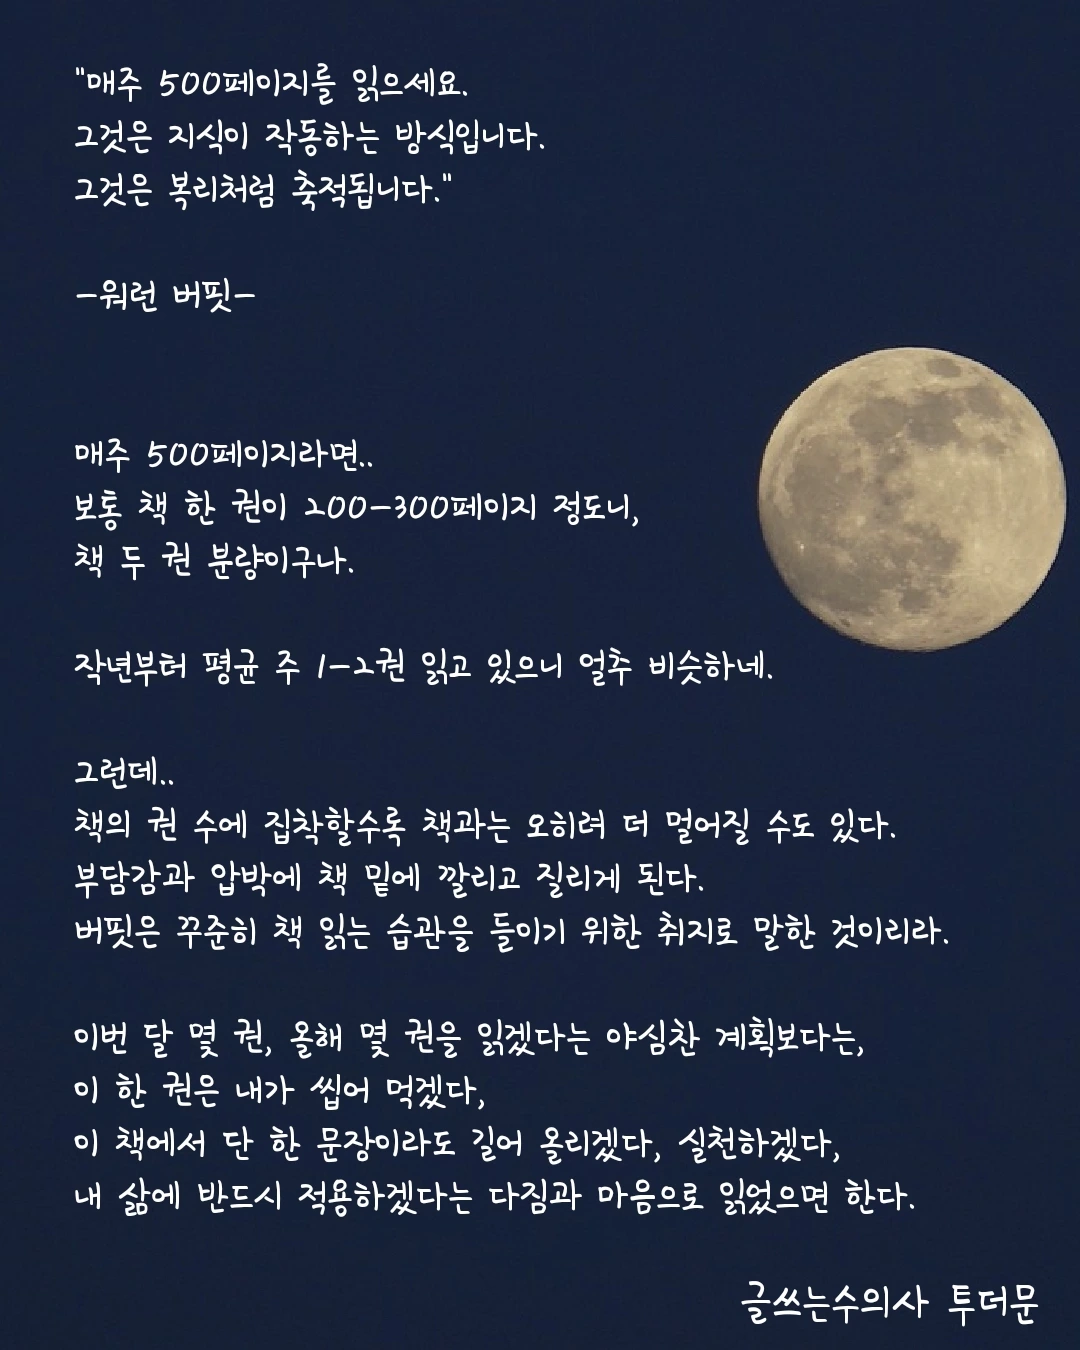 "매주 500페이지를 읽으세요.
그것은 지식이 작동하는 방식입니다.
그것은 복리처럼 축적됩니다."
-워런 버핏-
매주 500페이지라면..
보통 책 한 권이 200-300페이지 정도니,
책 두 권 분량이구나.
작년부터 평균 주 1-2권 읽고 있으니 얼추 비슷하네.
그런데..
책의 권 수에 집착할수록 책과는 오히려 더 멀어질 수도 있다.
부담감과 압박에 책 밑에 깔리고 질리게 된다.
버핏은 꾸준히 책 읽는 습관을 들이기 위한 취지로 말한 것이리라.
이번 달 몇 권, 올해 몇 권을 읽겠다는 야심찬 계획보다는,
이 한 권은 내가 씹어 먹겠다,
이 책에서 단 한 문장이라도 길어 올리겠다, 실천하겠다,
내 삶에 반드시 적용하겠다는 다짐과 마음으로 읽었으면 한다.
글쓰는수의사 투더문